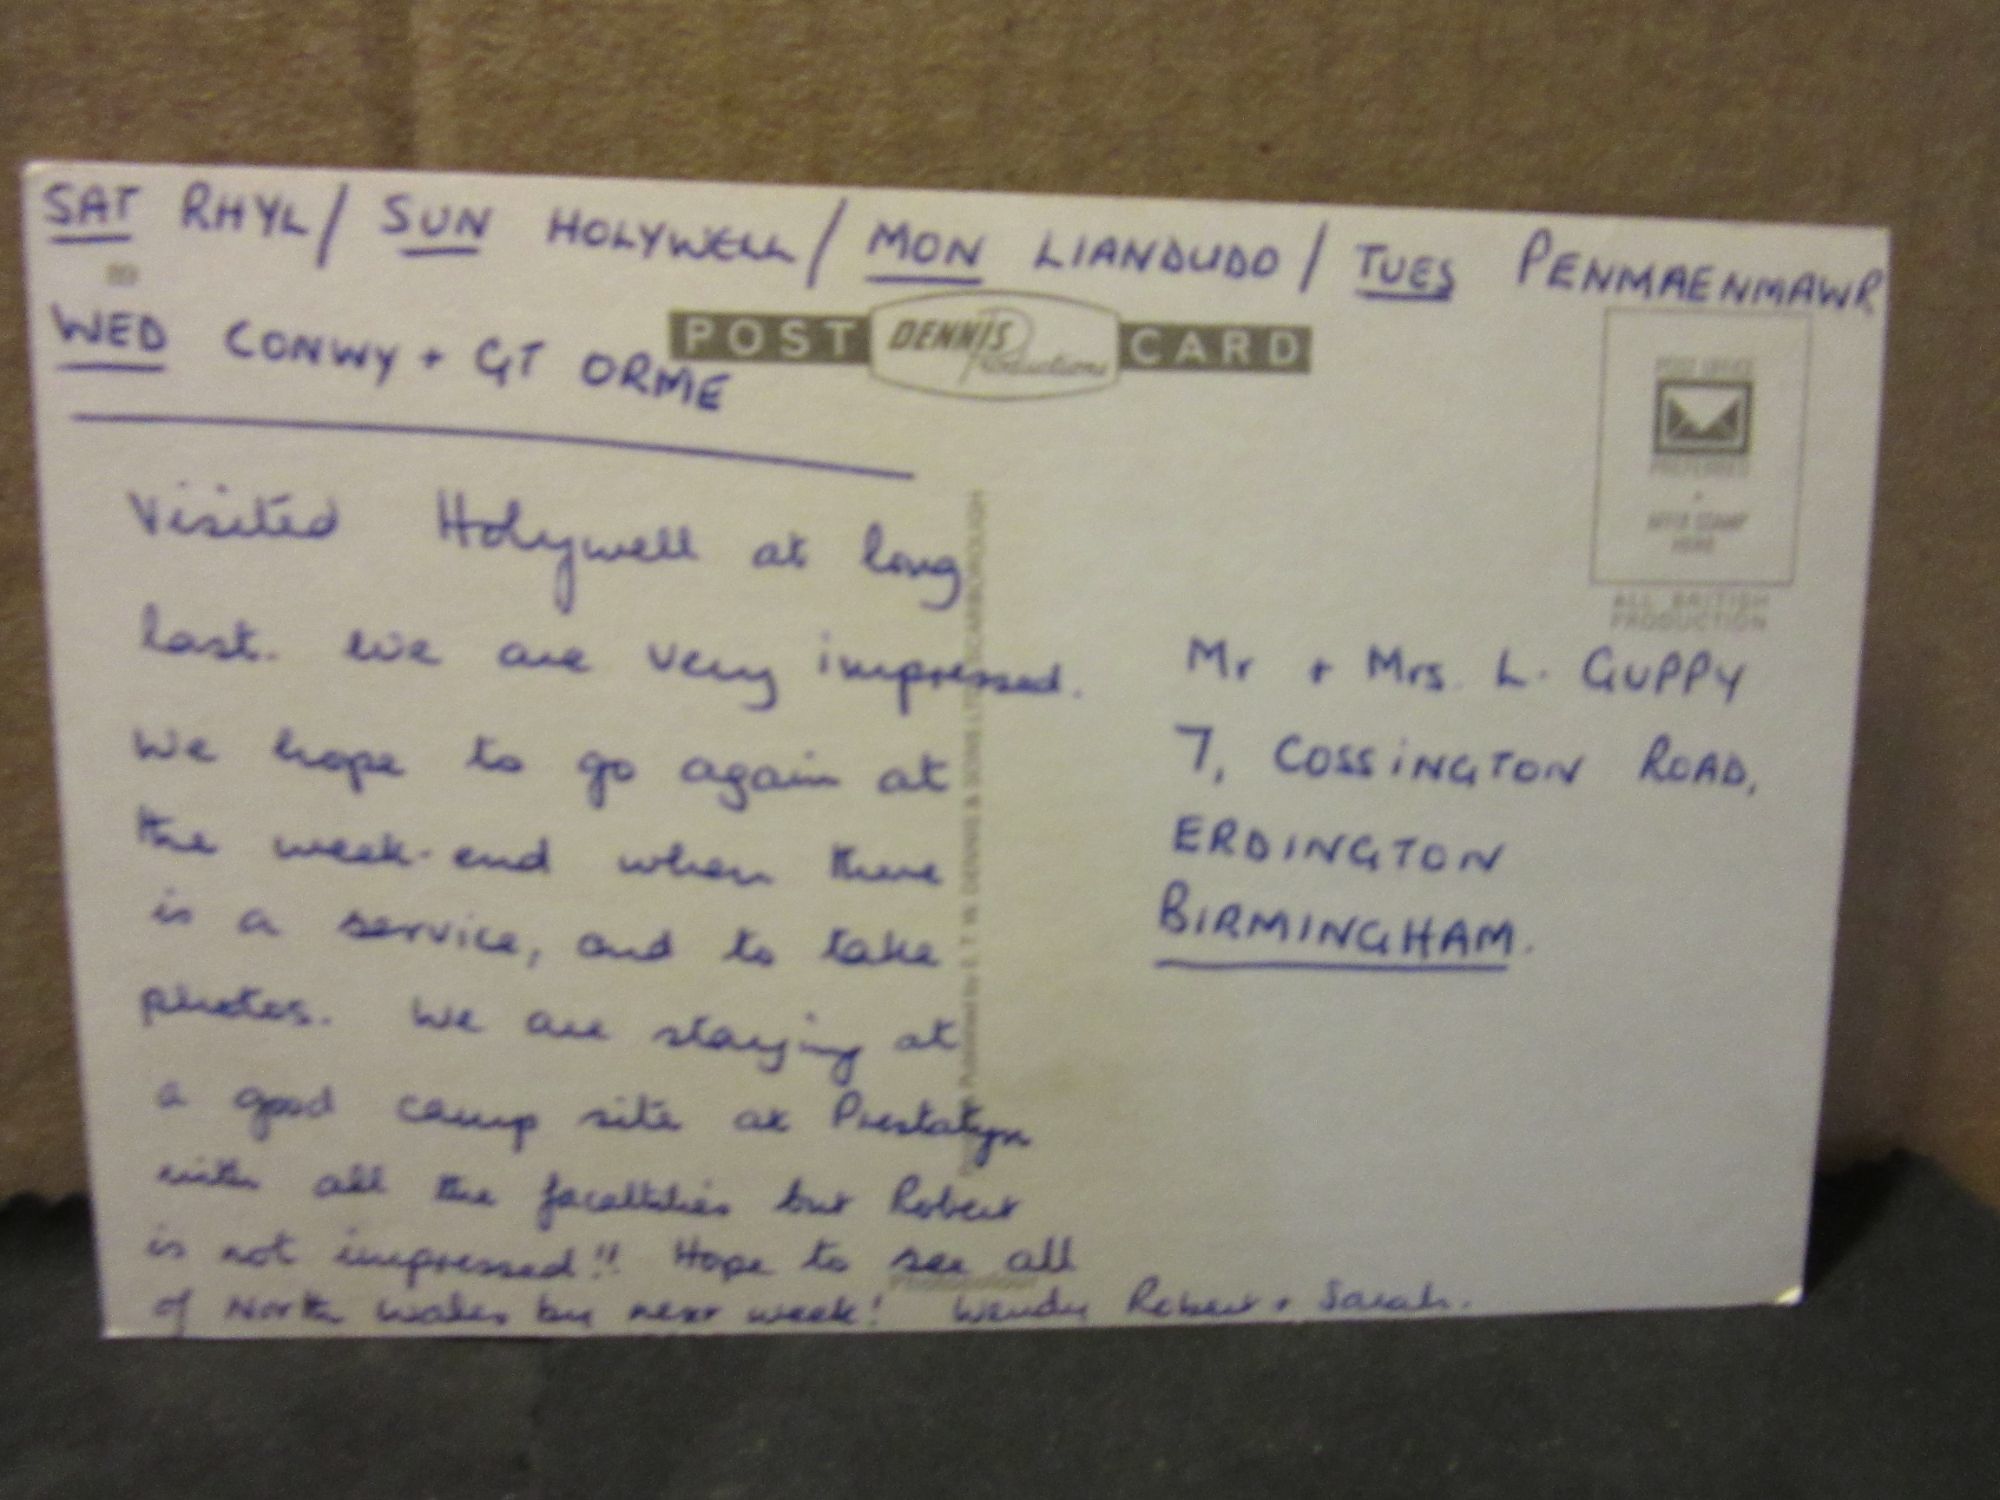 SAT RHYL / SUN HOLYWELL / MON LIANDUDO / TUES PENMAENMAWR
WED CONWY + GT ORME
POST DENNIS Productions CARD
POST OFFICE
PREFERRED
AFFIX STAMP
HERE
ALL BRITISH
PRODUCTION
Visited Holywell at long
last. We are very impressed.
We hope to go again at
the week-end when there
is a service, and to take
photos. We are staying at
a good camp site at Prestatyn
with all the facilities but Robert
is not impressed!! Hope to see all
of North Wales by next week! Wendy Robert + Sarah.
Published by E. T. W. DENNIS & SONS LTD SCARBOROUGH
Mr + Mrs. L. GUPPY
7, COSSINGTON ROAD,
ERDINGTON
BIRMINGHAM.